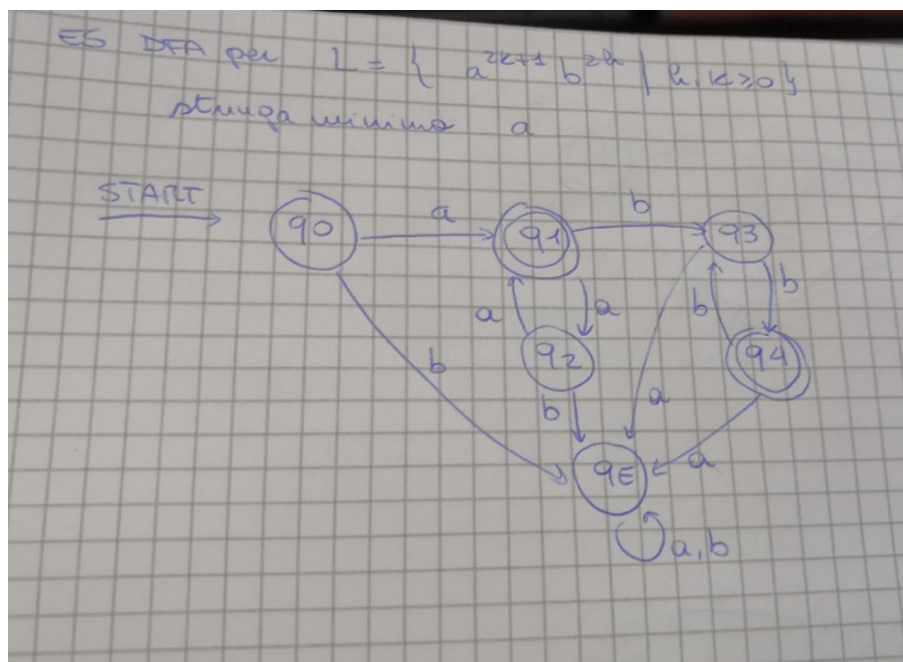 ES DFA per L = { a^{2k+1} b^{2h} | h, k ≥ 0 }
stringa minima a
START
q0
a
q1
b
q3
a
a
b
b
q2
q4
b
b
a
a
qE
a, b